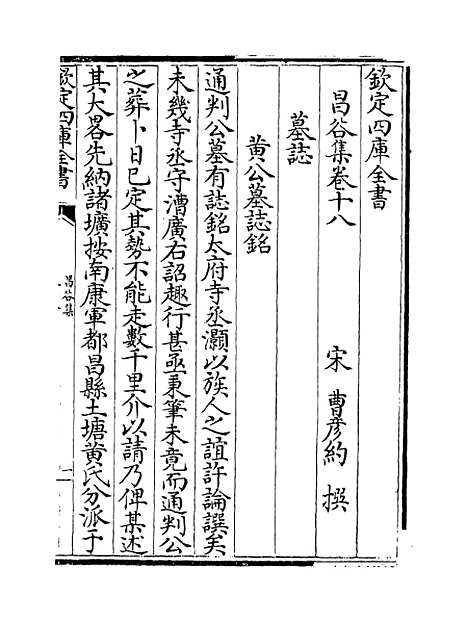 欽定四庫全書
昌谷集卷十八
宋 曹彦約 撰
墓誌
黄公墓誌銘
通判公墓有誌銘太府寺丞灝以族人之誼許論譔矣
未幾寺丞守漕廣右詔趣行甚亟秉筆未竟而通判公
之葬卜日已定其勢不能走數千里介以請乃俾某述
其大畧先納諸壙按南康軍都昌縣土塘黄氏分派于
欽定四庫全書
昌谷集
一